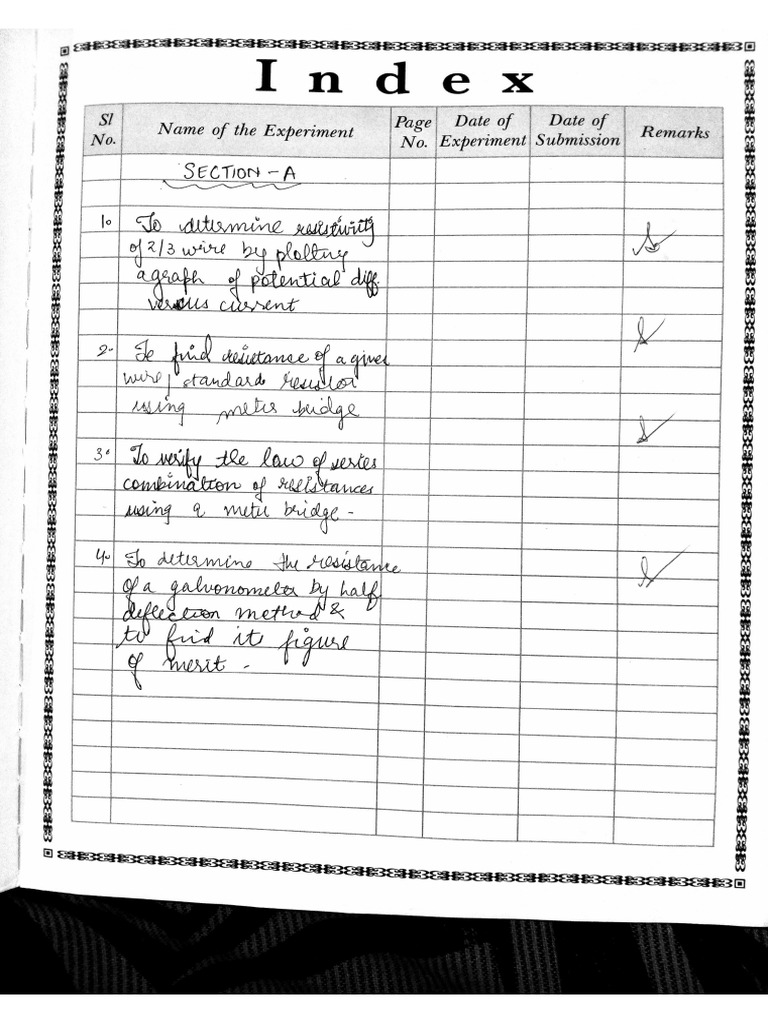 Index
Sl No. Name of the Experiment Page No. Date of Experiment Date of Submission Remarks
SECTION - A
1. To determine resistivity
of 2/3 wire by plotting
a graph of potential diff.
versus current
2. To find resistance of a given
wire/ standard resistor
using meter bridge
3. To verify the law of series
combination of resistances
using a meter bridge -
4. To determine the resistance
of a galvonometer by half
deflection method &
to find its figure
of merit -